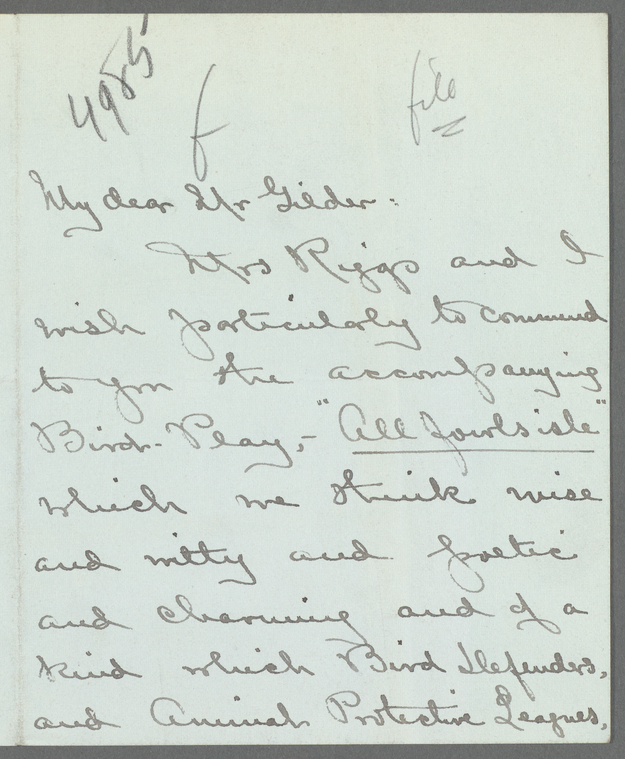 4985
f
file
My dear Mr Gilder:
Mrs Riggs and I
wish particularly to commend
to you the accompanying
Bird-Play,- "All Fowls isle"
which we think wise
and witty and poetic
and charming and of a
kind which Bird Defenders,
and Animal Protective Leagues,